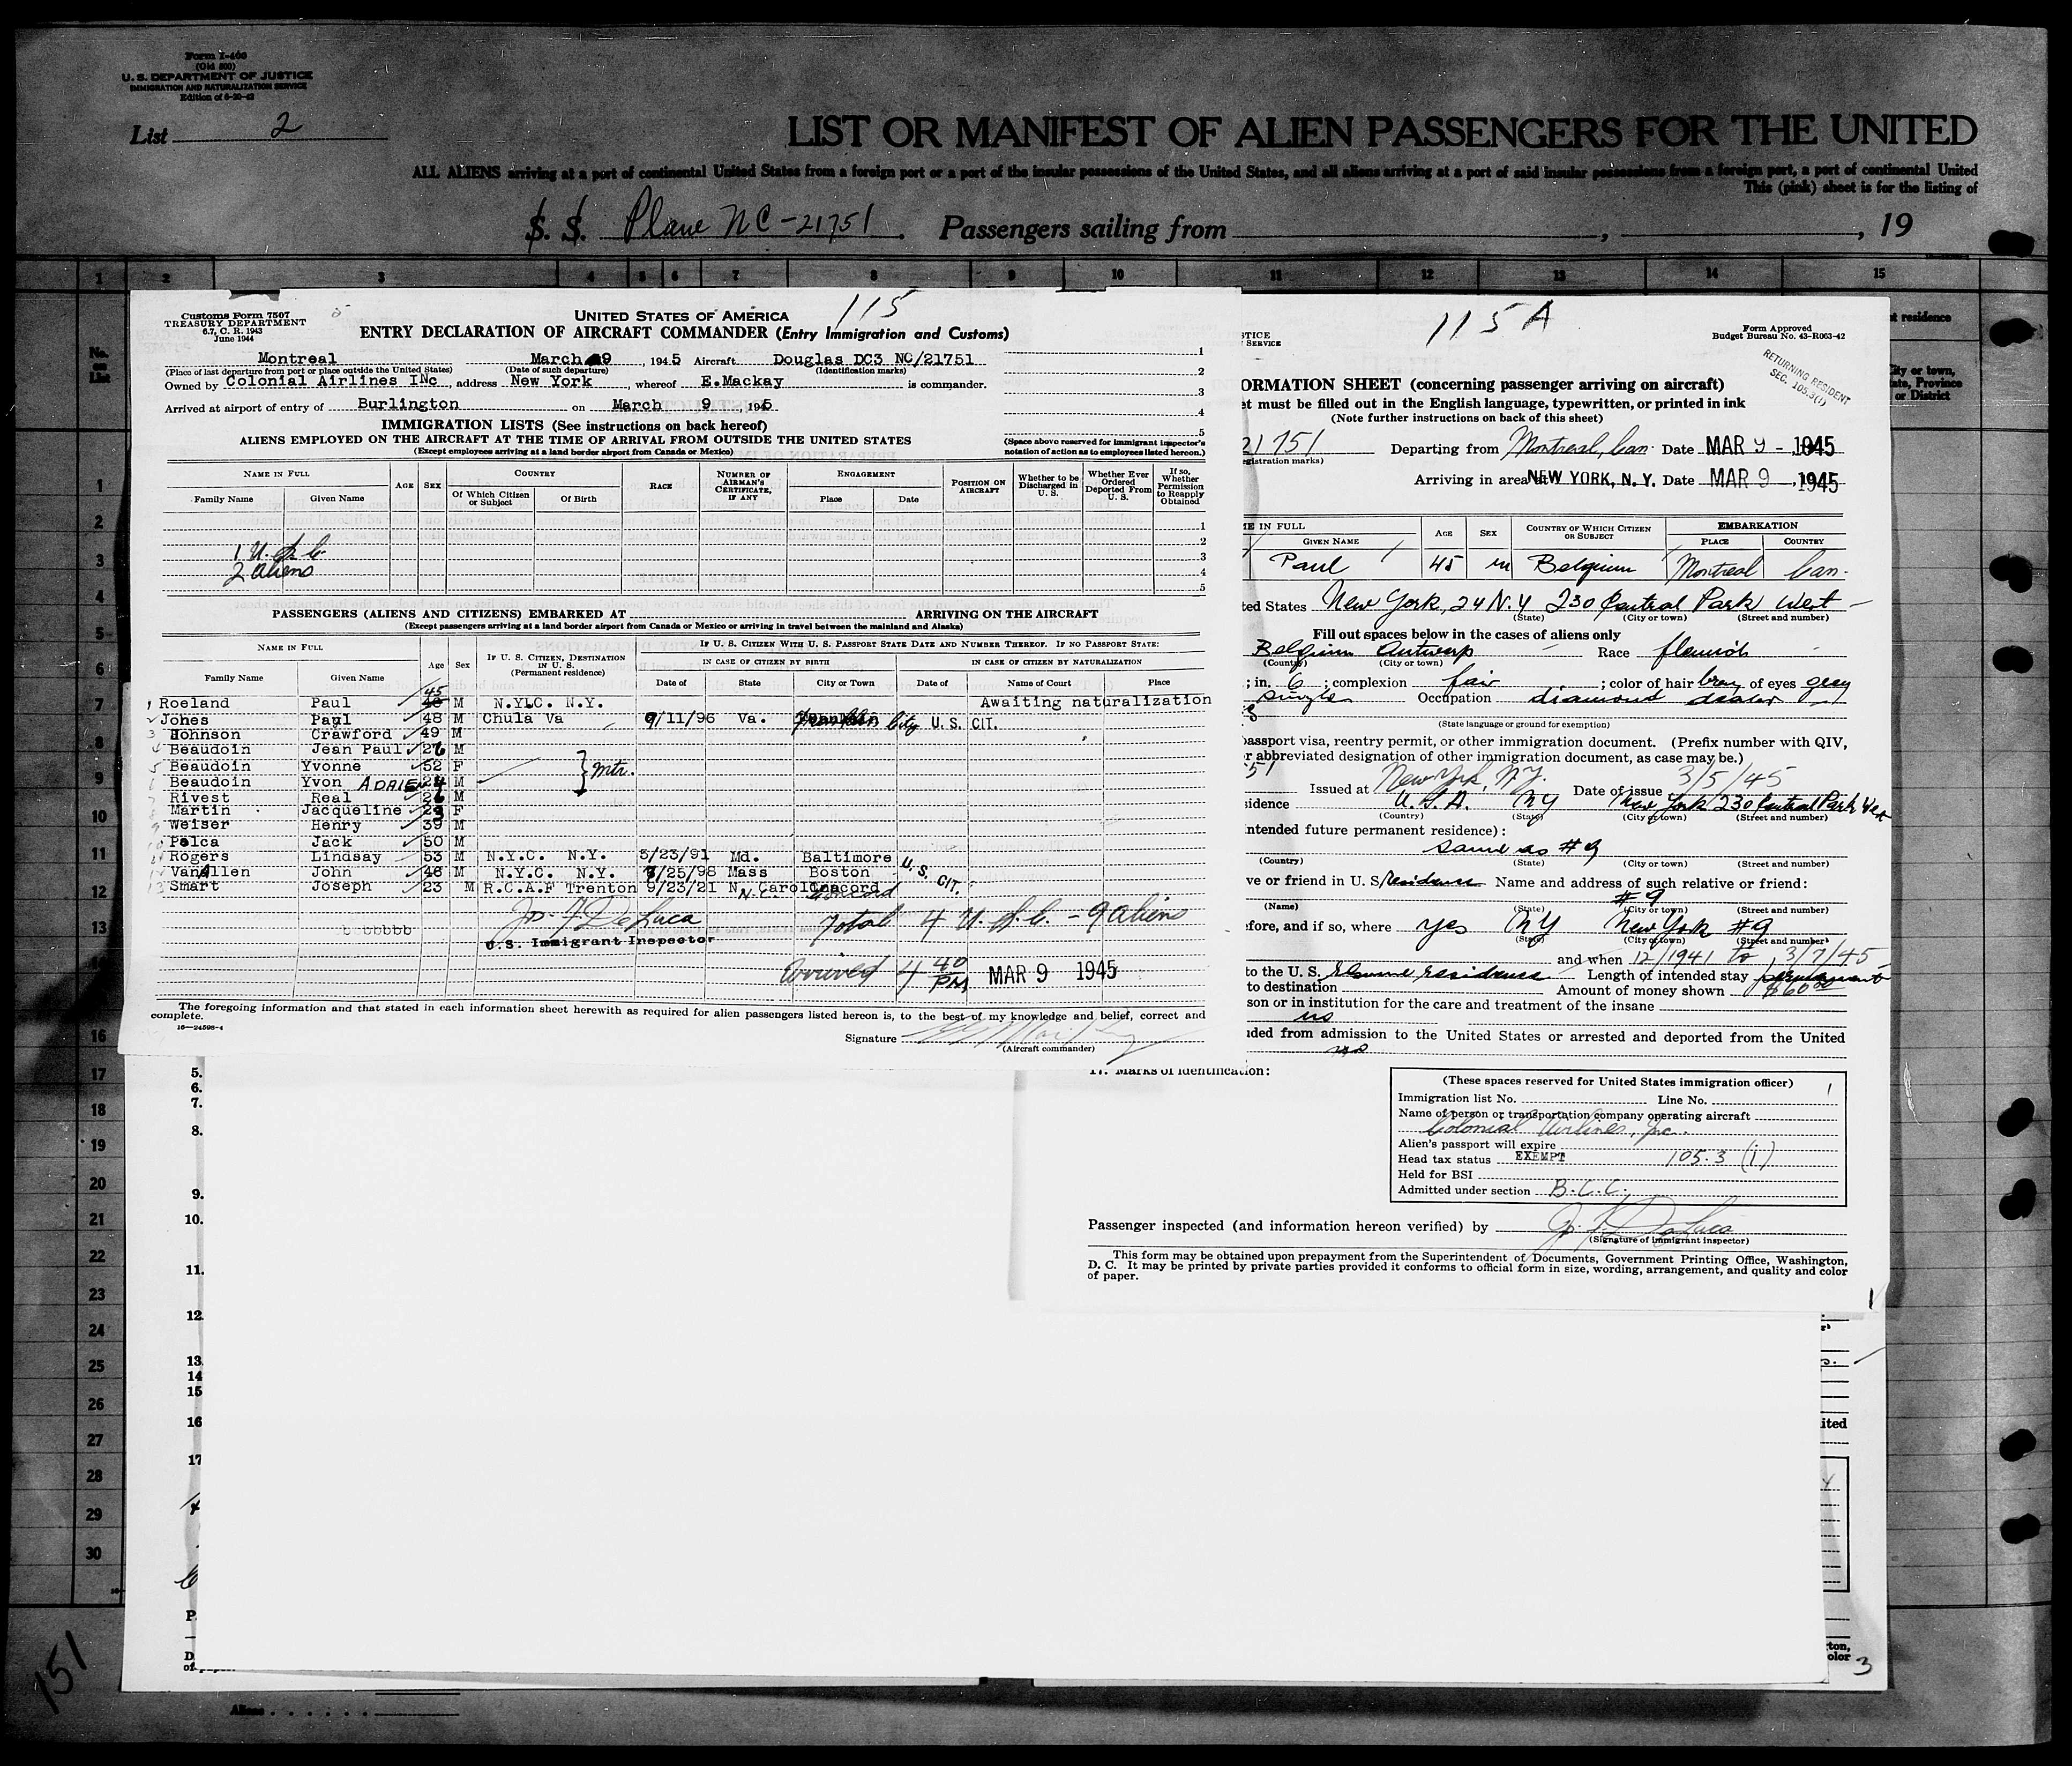 Form I-466
(Old 500)
U. S. DEPARTMENT OF JUSTICE
IMMIGRATION AND NATURALIZATION SERVICE
Edition of 6-20-42
List 2
LIST OR MANIFEST OF ALIEN PASSENGERS FOR THE UNITED
ALL ALIENS arriving at a port of continental United States from a foreign port or a port of the insular possessions of the United States, and all aliens arriving at a port of said insular possessions from a foreign port, a port of continental United
This (pink) sheet is for the listing of
S. S. Plane NC-21751. Passengers sailing from , , 19
1 2 3 4 5 6 7 8 9 10 11 12 13 14 15
No. on List
1
2
3
4
5
6
7
8
9
10
11
12
13
16
17
18
19
20
21
22
23
24
25
26
27
28
29
30
151
Customs Form 7507
TREASURY DEPARTMENT
6.7, C. R. 1943
June 1944
115
UNITED STATES OF AMERICA
ENTRY DECLARATION OF AIRCRAFT COMMANDER (Entry Immigration and Customs)
Montreal March 9, 1945 Aircraft Douglas DC3 NC/21751
(Place of last departure from port or place outside the United States) (Date of such departure) (Identification marks)
Owned by Colonial Airlines INc, address New York, whereof E.Mackay is commander.
Arrived at airport of entry of Burlington on March 9, 1945
IMMIGRATION LISTS (See instructions on back hereof)
ALIENS EMPLOYED ON THE AIRCRAFT AT THE TIME OF ARRIVAL FROM OUTSIDE THE UNITED STATES
(Except employees arriving at a land border airport from Canada or Mexico)
1
2
3
4
5
(Space above reserved for immigrant inspector's notation of action as to employees listed hereon.)
NAME IN FULL AGE SEX COUNTRY RACE NUMBER OF AIRMAN'S CERTIFICATE, IF ANY ENGAGEMENT POSITION ON AIRCRAFT Whether to be Discharged in U. S. Whether Ever Ordered Deported From U. S. If so, Whether Permission to Reapply Obtained
Family Name Given Name Of Which Citizen or Subject Of Birth Place Date
1
2
3
4
5
1 U.S.C.
2 aliens
PASSENGERS (ALIENS AND CITIZENS) EMBARKED AT ARRIVING ON THE AIRCRAFT
(Except passengers arriving at a land border airport from Canada or Mexico or arriving in travel between the mainland and Alaska)
NAME IN FULL Age Sex IF U. S. CITIZEN, DESTINATION IN U. S. (Permanent residence) IF U. S. CITIZEN WITH U. S. PASSPORT STATE DATE AND NUMBER THEREOF. IF NO PASSPORT STATE:
IN CASE OF CITIZEN BY BIRTH IN CASE OF CITIZEN BY NATURALIZATION
Family Name Given Name Date of State City or Town Date of Name of Court Place
1 Roeland Paul 45 M N.Y.C. N.Y. Awaiting naturalization
2 Jones Paul 48 M Chula Va 9/11/96 Va. City U. S. CIT.
3 Johnson Crawford 49 M
4 Beaudoin Jean Paul 26 M
5 Beaudoin Yvonne 52 F } Mtr.
6 Beaudoin Yvon ADRIEN 24 M
7 Rivest Real 26 M
8 Martin Jacqueline 23 F
9 Weiser Henry 39 M
10 Polca Jack 50 M
11 Rogers Lindsay 53 M N.Y.C. N.Y. 5/23/91 Md. Baltimore U. S. CIT.
12 VanAllen John 46 M N.Y.C. N.Y. 7/25/98 Mass Boston
13 Smart Joseph 23 M R.C.A.F Trenton 9/23/21 N. Carolina Concord
N.C. Concord
Jos. F. DeLuca Total 4 U.S.C. - 9 aliens
bbbbbbb U.S. Immigrant Inspector
arrived 4 40 PM MAR 9 1945
The foregoing information and that stated in each information sheet herewith as required for alien passengers listed hereon is, to the best of my knowledge and belief, correct and complete.
16—24598-4
Signature
(Aircraft commander)
115A
STICE
SERVICE
Form Approved
Budget Bureau No. 43-R063-42
RETURNING RESIDENT
SEC. 105.3(i)
ORMATION SHEET (concerning passenger arriving on aircraft)
et must be filled out in the English language, typewritten, or printed in ink
(Note further instructions on back of this sheet)
21751 Departing from Montreal, Can. Date MAR 9 - 1945
egistration marks)
Arriving in area NEW YORK, N. Y. Date MAR 9 - 1945
E IN FULL AGE SEX COUNTRY OF WHICH CITIZEN OR SUBJECT EMBARKATION
GIVEN NAME PLACE COUNTRY
Paul 45 m Belgium Montreal Can.
ted States New York, 24 N.Y 230 Central Park West
(State) (City or town) (Street and number)
Fill out spaces below in the cases of aliens only
Belgium Antwerp Race flemish
(Country) (City or town)
; in. 6 ; complexion fair ; color of hair brn of eyes grey
single Occupation diamond dealer
(State language or ground for exemption)
passport visa, reentry permit, or other immigration document. (Prefix number with QIV,
r abbreviated designation of other immigration document, as case may be.)
51 Issued at New York, N.Y. Date of issue 3/5/45
sidence U.S.A. NY New York 230 Central Park West
(Country) (State) (City or town) (Street and number)
intended future permanent residence):
same as #9
(Country) (State) (City or town) (Street and number)
ve or friend in U. S. residence Name and address of such relative or friend:
#9
(Name) (State) (City or town) (Street and number)
efore, and if so, where yes NY New York #9
(State) (City or town) (Street and number)
and when 12/1941 to 3/7/45
to the U. S. resume residence Length of intended stay permanent
to destination Amount of money shown $60.00
son or in institution for the care and treatment of the insane
no
ided from admission to the United States or arrested and deported from the United
no
17. Marks of identification:
(These spaces reserved for United States immigration officer)
Immigration list No. Line No. 1
Name of person or transportation company operating aircraft
Colonial Airlines, Inc.
Alien's passport will expire
Head tax status EXEMPT 105.3 (i)
Held for BSI
Admitted under section B.C.C.
Passenger inspected (and information hereon verified) by Jos. F. DeLuca
(Signature of immigrant inspector)
This form may be obtained upon prepayment from the Superintendent of Documents, Government Printing Office, Washington,
D. C. It may be printed by private parties provided it conforms to official form in size, wording, arrangement, and quality and color
of paper.
1
t residence
City or town,
ate, Province
or District
5.
6.
7.
8.
9.
10.
11.
12.
13.
14
15
16
17
P.
D.
of
ited
ton,
olor
3
Aliens